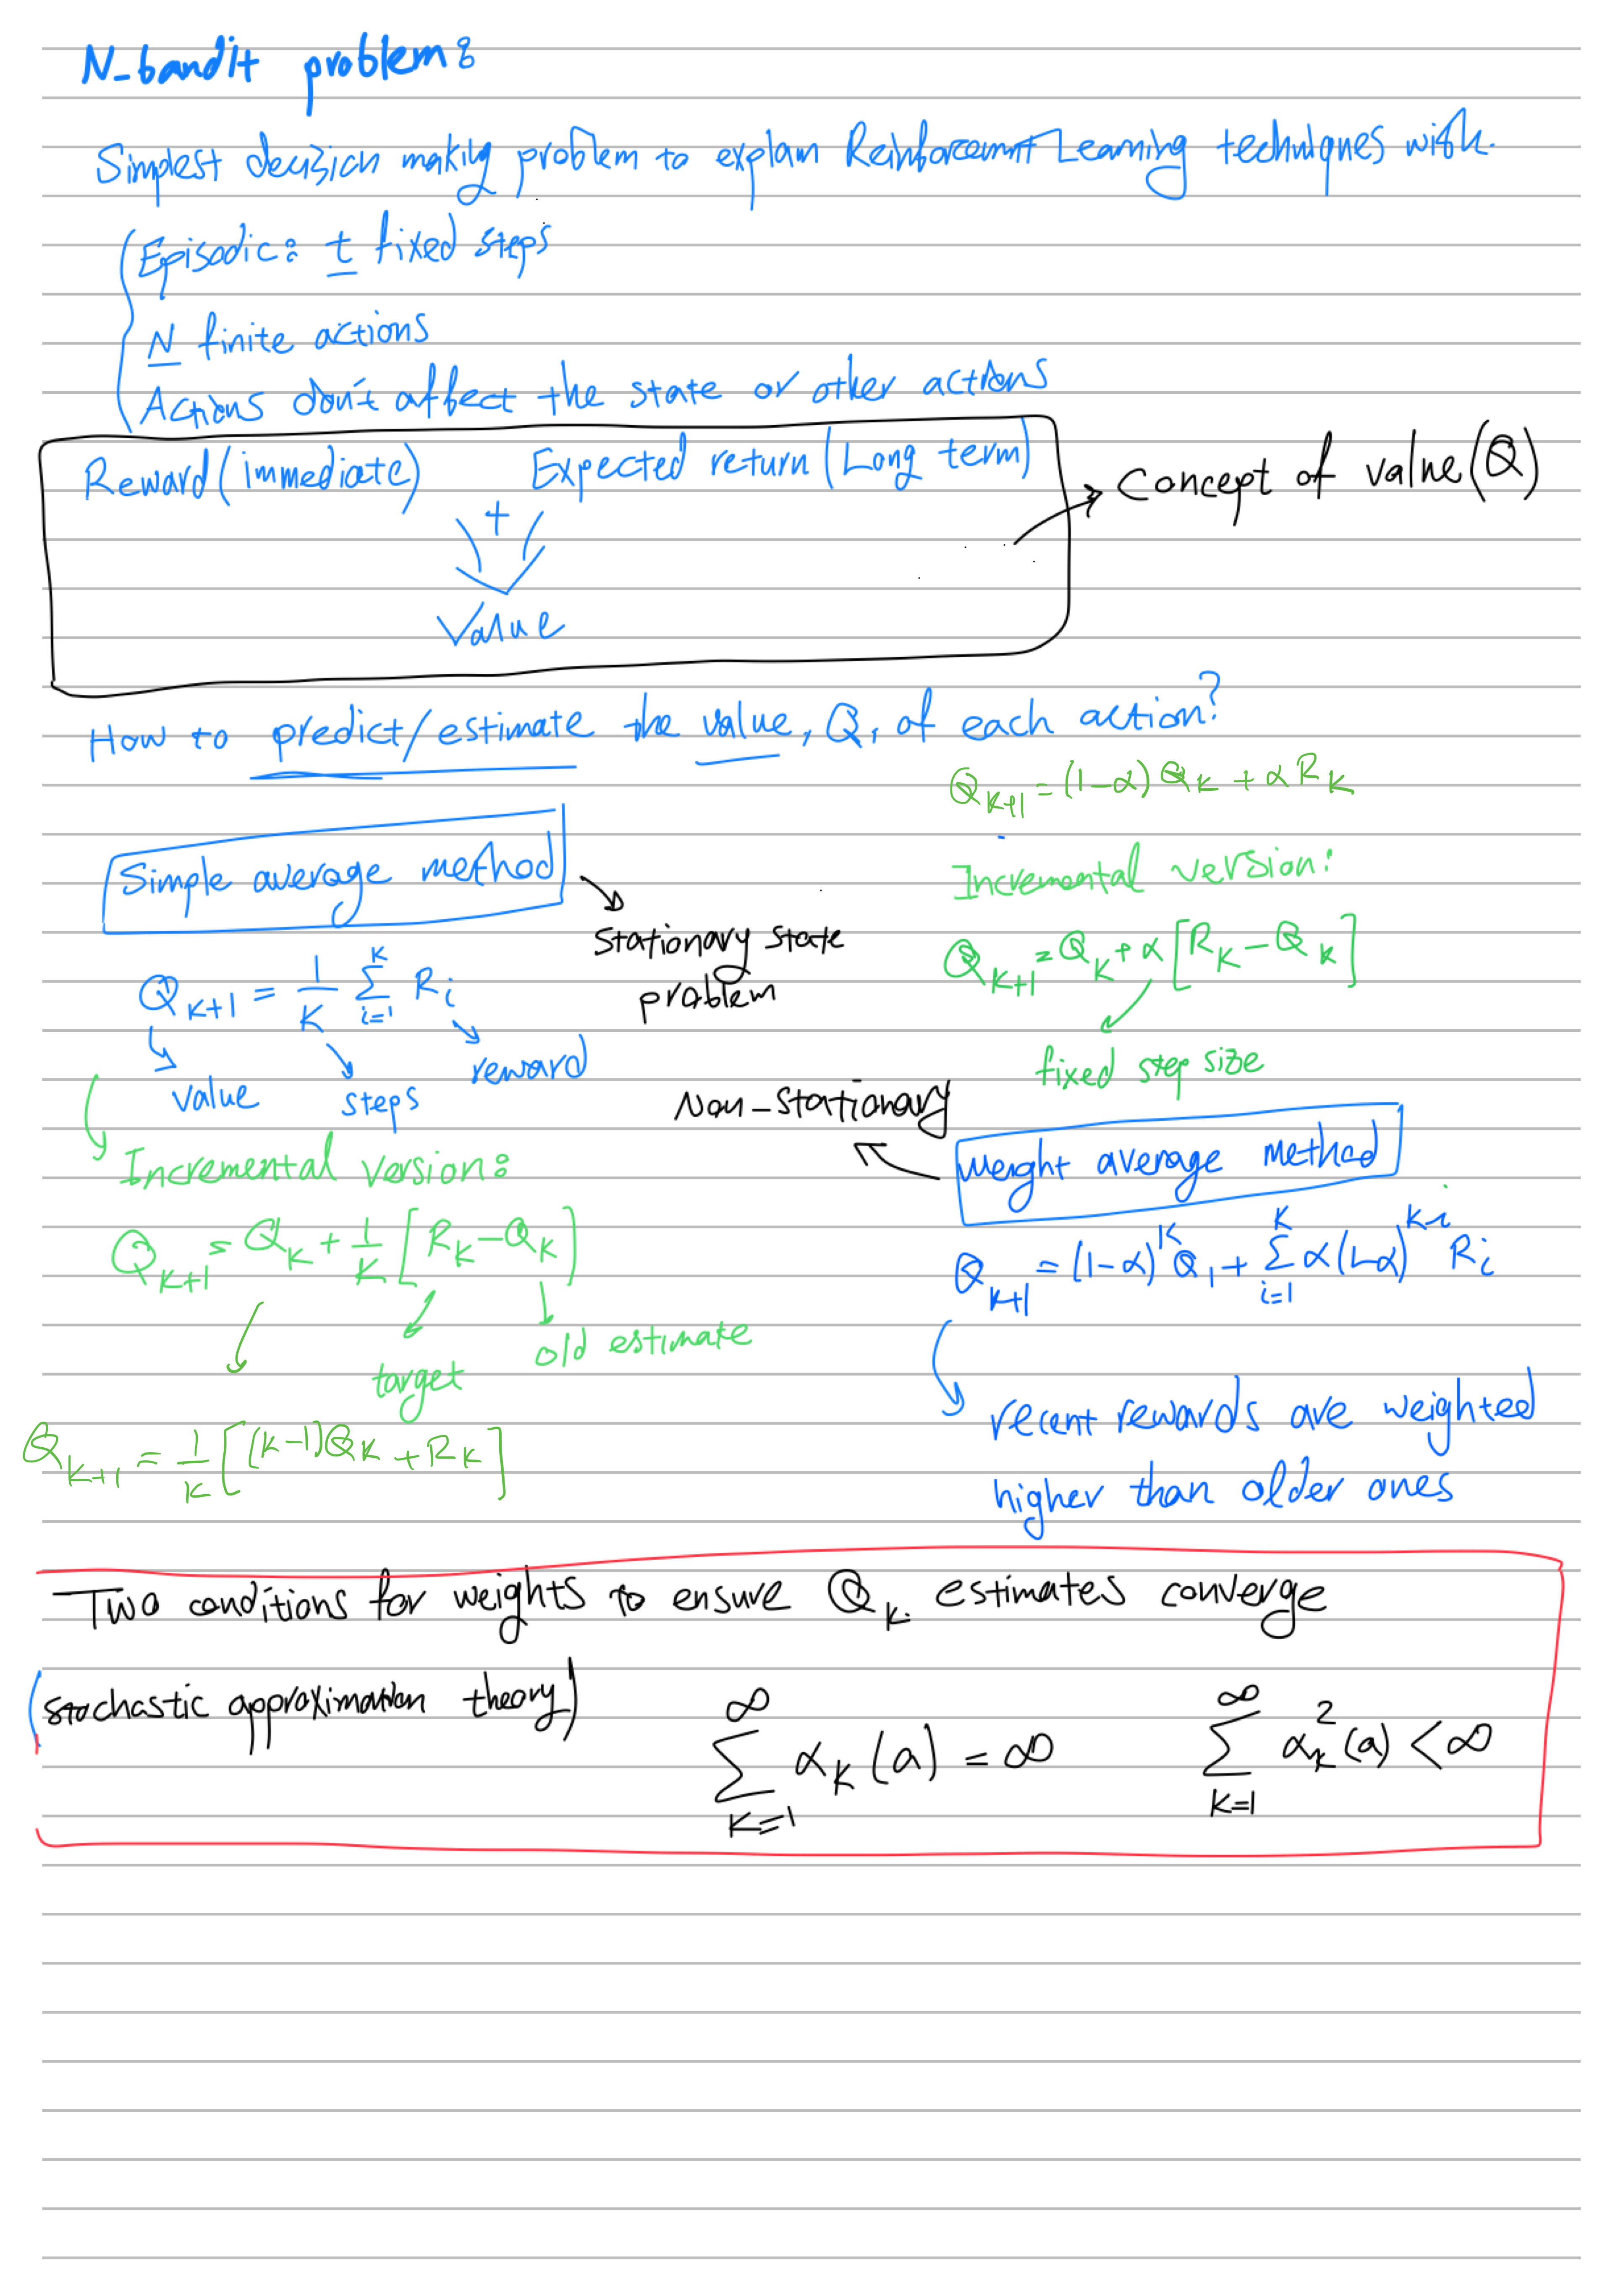 N-bandit problem:
Simplest decision making problem to explain Reinforcement Learning techniques with.
Episodic: t fixed steps
N finite actions
Actions don't affect the state or other actions
Reward (immediate) + Expected return (Long term)
Value
Concept of value (Q)
How to predict/estimate the value, Q, of each action?
Simple average method
Stationary state
problem
Q_{K+1} = \frac{1}{K} \sum_{i=1}^{K} R_i
value
steps
reward
Incremental version:
Q_{K+1} = Q_K + \frac{1}{K} [R_K - Q_K]
target
old estimate
Q_{K+1} = \frac{1}{K} [(K-1)Q_K + R_K]
Q_{K+1} = (1-α) Q_K + α R_K
Incremental version:
Q_{K+1} = Q_K + α [R_K - Q_K]
fixed step size
Non-Stationary
weight average method
Q_{K+1} = (1-α)^K Q_1 + \sum_{i=1}^{K} α(1-α)^{K-i} R_i
recent rewards are weighted
higher than older ones
Two conditions for weights to ensure Q_K estimates converge
(stochastic approximation theory)
\sum_{K=1}^{∞} α_K(a) = ∞
\sum_{K=1}^{∞} α_K^2(a) < ∞